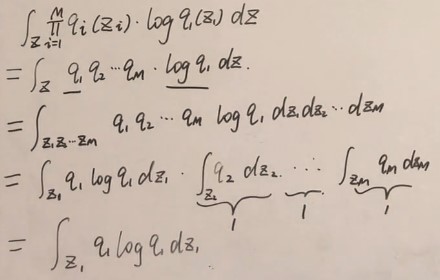 ∫_Z ∏_{i=1}^{M} q_i(z_i) · log q_1(z_1) dz
= ∫_Z q_1 q_2 ⋯ q_M · log q_1 dz.
= ∫_{z_1 z_2 ⋯ z_M} q_1 q_2 ⋯ q_M log q_1 dz_1 dz_2 ⋯ dz_M
= ∫_{z_1} q_1 log q_1 dz_1 · ∫_{z_2} q_2 dz_2 ⋯ ∫_{z_M} q_M dz_M
1 1 1
= ∫_{z_1} q_1 log q_1 dz_1